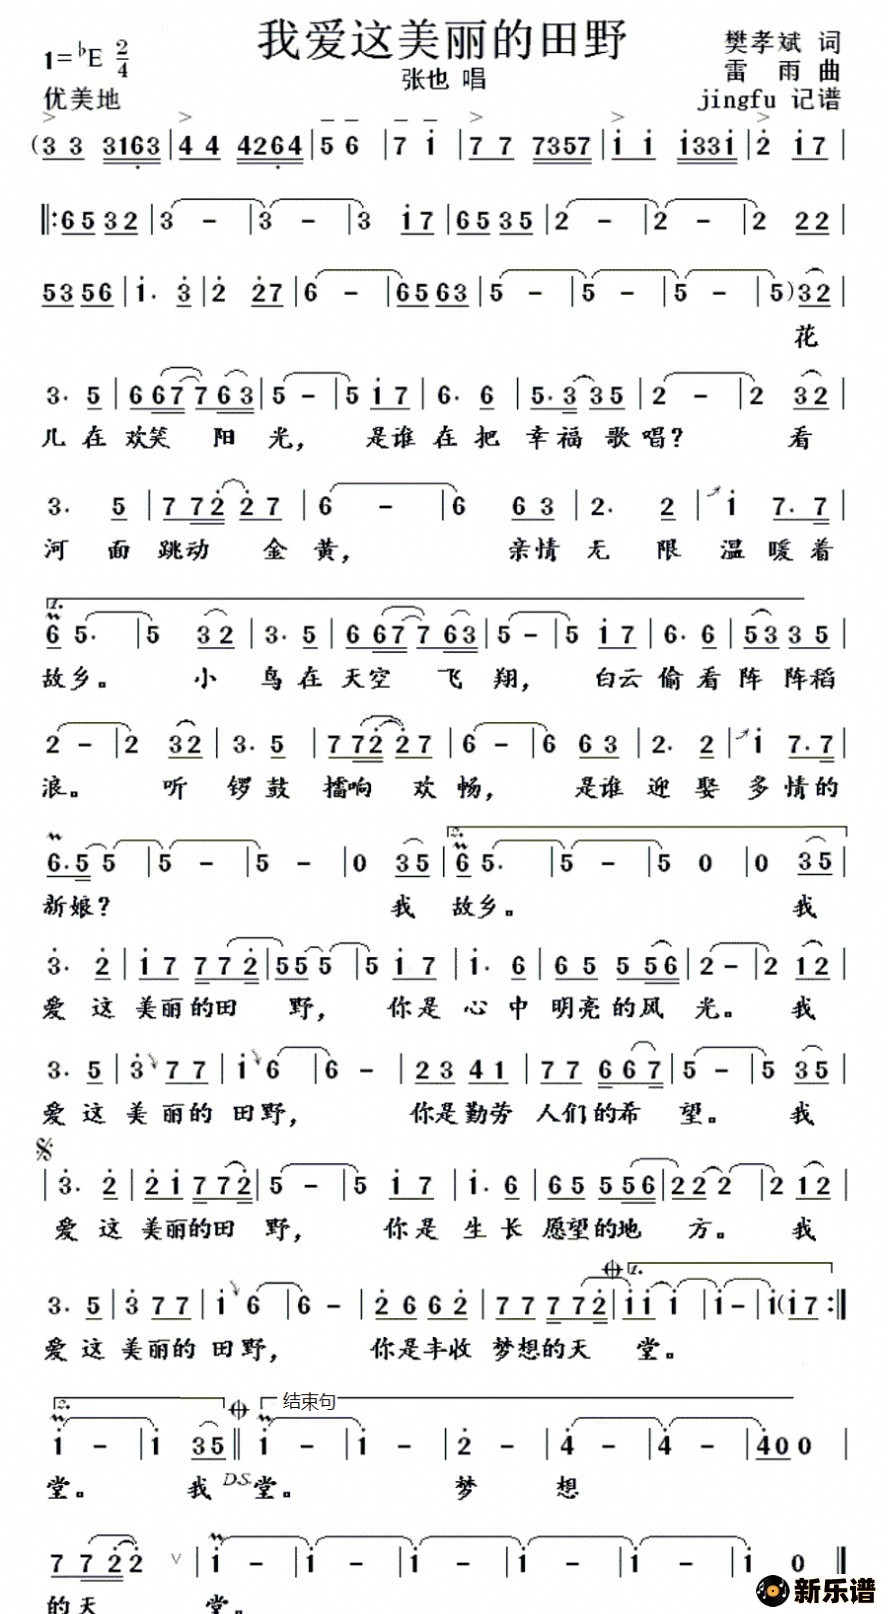 我爱这美丽的田野
1=♭E 2/4
樊孝斌 词
张也 唱
雷 雨 曲
优美地
jingfu 记谱
(3 3 3163|4 4 4264|5 6|7 i|7 7 7357|i i i33i|2 i7|
‖:65 32|3 –|3 –|3 i7|65 35|2 –|2 –|2 22|
53 56|i. 3|2 27|6 –|65 63|5 –|5 –|5 –|5) 32|
花
3. 5|6 67 7 63|5 –|5 i 7|6. 6|5. 3 35|2 –|2 32|
儿 在 欢笑 阳 光， 是谁 在 把 幸福 歌唱？ 看
3. 5|7 72 27|6 –|6 63|2. 2|i 7. 7|
河 面 跳动 金 黄， 亲情 无 限 温 暖 着
1.
6 5. |5 32|3. 5|6 67 7 63|5 –|5 i 7|6. 6|53 3 5|
故乡。 小 鸟 在 天空 飞 翔， 白云 偷 看 阵 阵稻
2 –|2 32|3. 5|7 72 27|6 –|6 63|2. 2|i 7. 7|
浪。 听 锣 鼓 擂响 欢 畅， 是谁 迎 娶 多 情的
2.
6. 5 5|5 –|5 –|0 35|6 5. |5 –|5 0|0 35|
新娘？ 我 故乡。 我
3. 2|i 7 7 72|55 5|5 i 7|i. 6|65 5 56|2 –|2 12|
爱 这 美丽的田 野， 你是 心 中 明亮的风 光。 我
3. 5|3 7 7|i 6|6 –|23 41|77 6 67|5 –|5 35|
爱 这 美 丽的 田野， 你是勤劳 人们的希 望。 我
|3. 2|2i 7 72|5 –|5 i7|i. 6|65 5 56|22 2|2 12|
爱 这 美丽的田 野， 你是 生 长 愿望的地 方。 我
1.
3. 5|3 7 7|i 6|6 –|2 6 6 2|77 7 72|ii i|i –|i (i 7:‖
爱 这 美 丽的 田野， 你是丰收 梦想的天 堂。
2. 结束句
i –|i 35‖i –|i –|2 –|4 –|4 –|400|
堂。 我 D.S. 堂。 梦 想
7 72 2 ∨|i –|i –|i –|i –|i –|i 0‖
的天 堂。
新乐谱